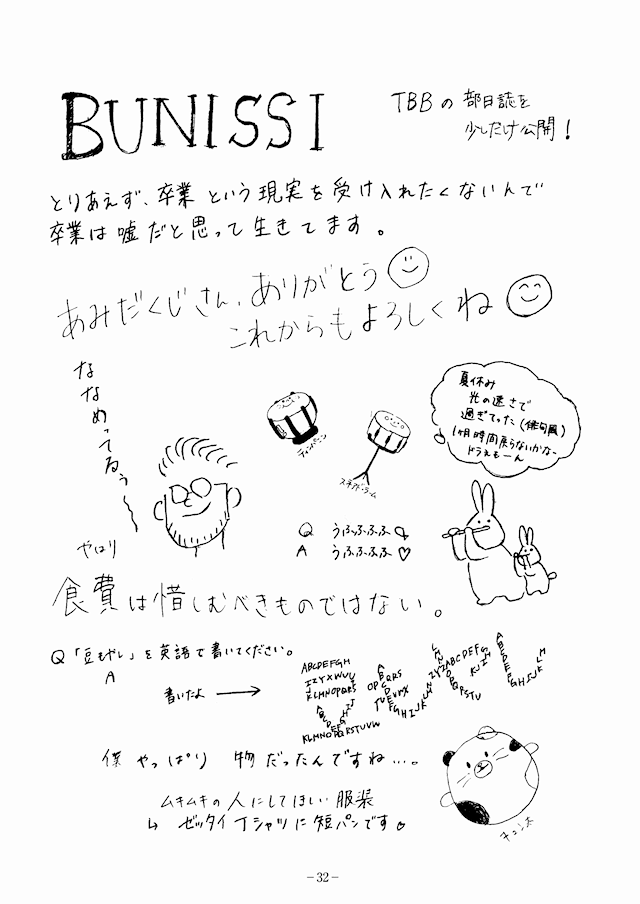 BUNISSI
TBBの部日誌を
少しだけ公開!
とりあえず、卒業という現実を受け入れたくないんで
卒業は嘘だと思って生きてます。
あみだくじさん、ありがとう
これからもよろしくね
ななめってるぅ〜〜
やはり
ティンパニーン
スネアドラーム
夏休み
光の速さで
過ぎてった(俳句風)
1ヶ月時間戻らないかな-
ドラえもーん
Q うふっふふふ
A うふふふふ♡
食費は惜しむべきものではない。
Q「豆もやし」を英語で書いてください。
A
書いたよ →
ABCDEFGH
KLMNOPQRSTUVW
僕 やっぱり 物だったんですね…。
ムキムキの人にしてほしい服装
↳ ゼッタイTシャツに短パンです
-32-